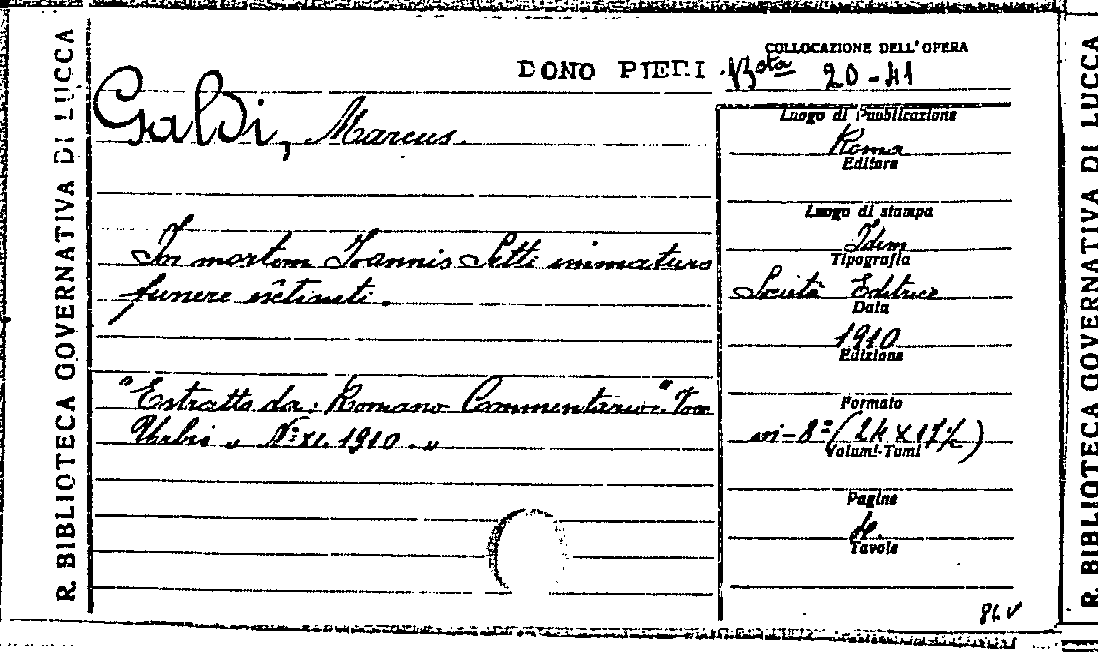 R. BIBLIOTECA GOVERNATIVA DI LUCCA
DONO PIERI
COLLOCAZIONE DELL'OPERA
Bta 20-41
Galdi, Marcus.
In mortem Ioannis Setti immaturo
funere extincti.
"Estratto da: Romano Commentario "Vox
Urbis" N. XI. 1910."
Luogo di Pubblicazione
Roma
Editore
Luogo di stampa
Idem
Tipografia
Società Editrice
Data
1910
Edizione
Formato
in-8° (24 x 17½)
Volumi-Tomi
Pagine
4.
Tavole
R. BIBLIOTECA GOVERNATIVA DI LUCCA